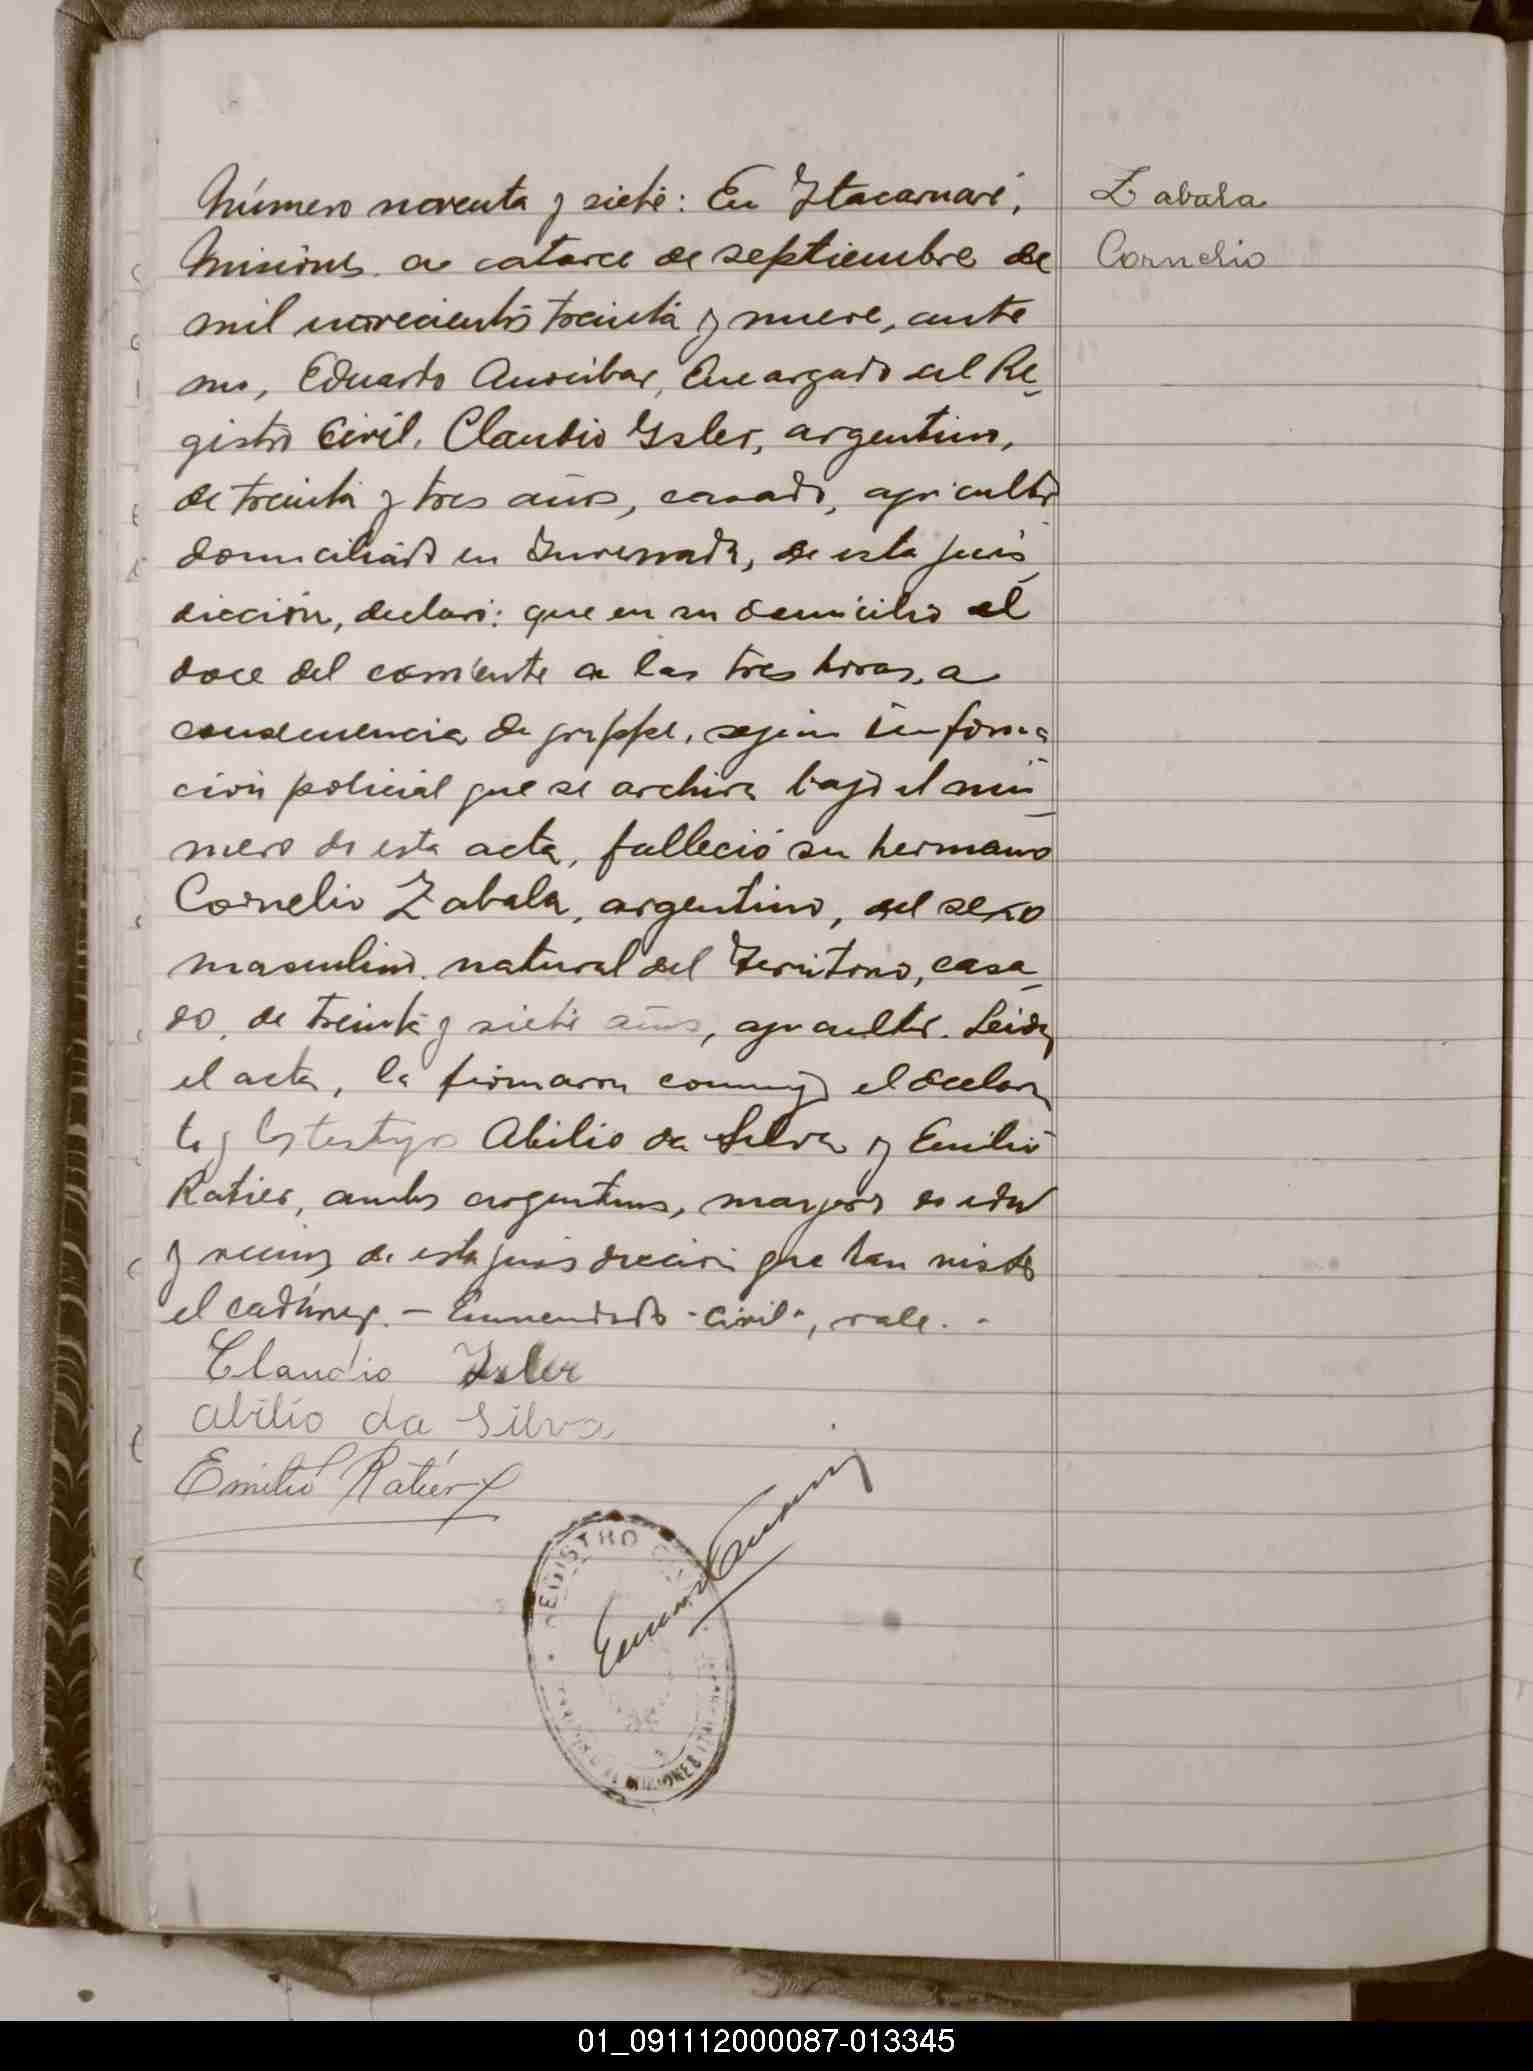 Número noventa y siete: En Itacaruaré,
Misiones a catorce de septiembre de
mil novecientos treinta y nueve, ante
mi, Eduardo Encargado del Re-
gistro Civil, Claudio Ysler, argentino,
de treinta y tres años, casado, agricultor
domiciliado en Invernada, de esta juris
dicción, declaró: que en su domicilio el
doce del corriente a las tres horas, a
consecuencia de grippe, según informa
ción policial que se archiva bajo el nú-
mero de esta acta, falleció su hermano
Cornelio Zabala, argentino, del sexo
masculino, natural del Territorio, casa-
do, de treinta y siete años, agricultor. Leida
el acta, la firmaron conmigo el declaran
te y los testigos Abilio da Silva y Emilio
Ratier, ambos argentinos, mayores de edad
y vecinos de esta jurisdicción que han visto
el cadáver. - Enmendado "civil", vale. -
Claudio Isler
abilio da silva
Emilio Ratier
REGISTRO
MISIONES
Zabala
Cornelio
01_091112000087-013345